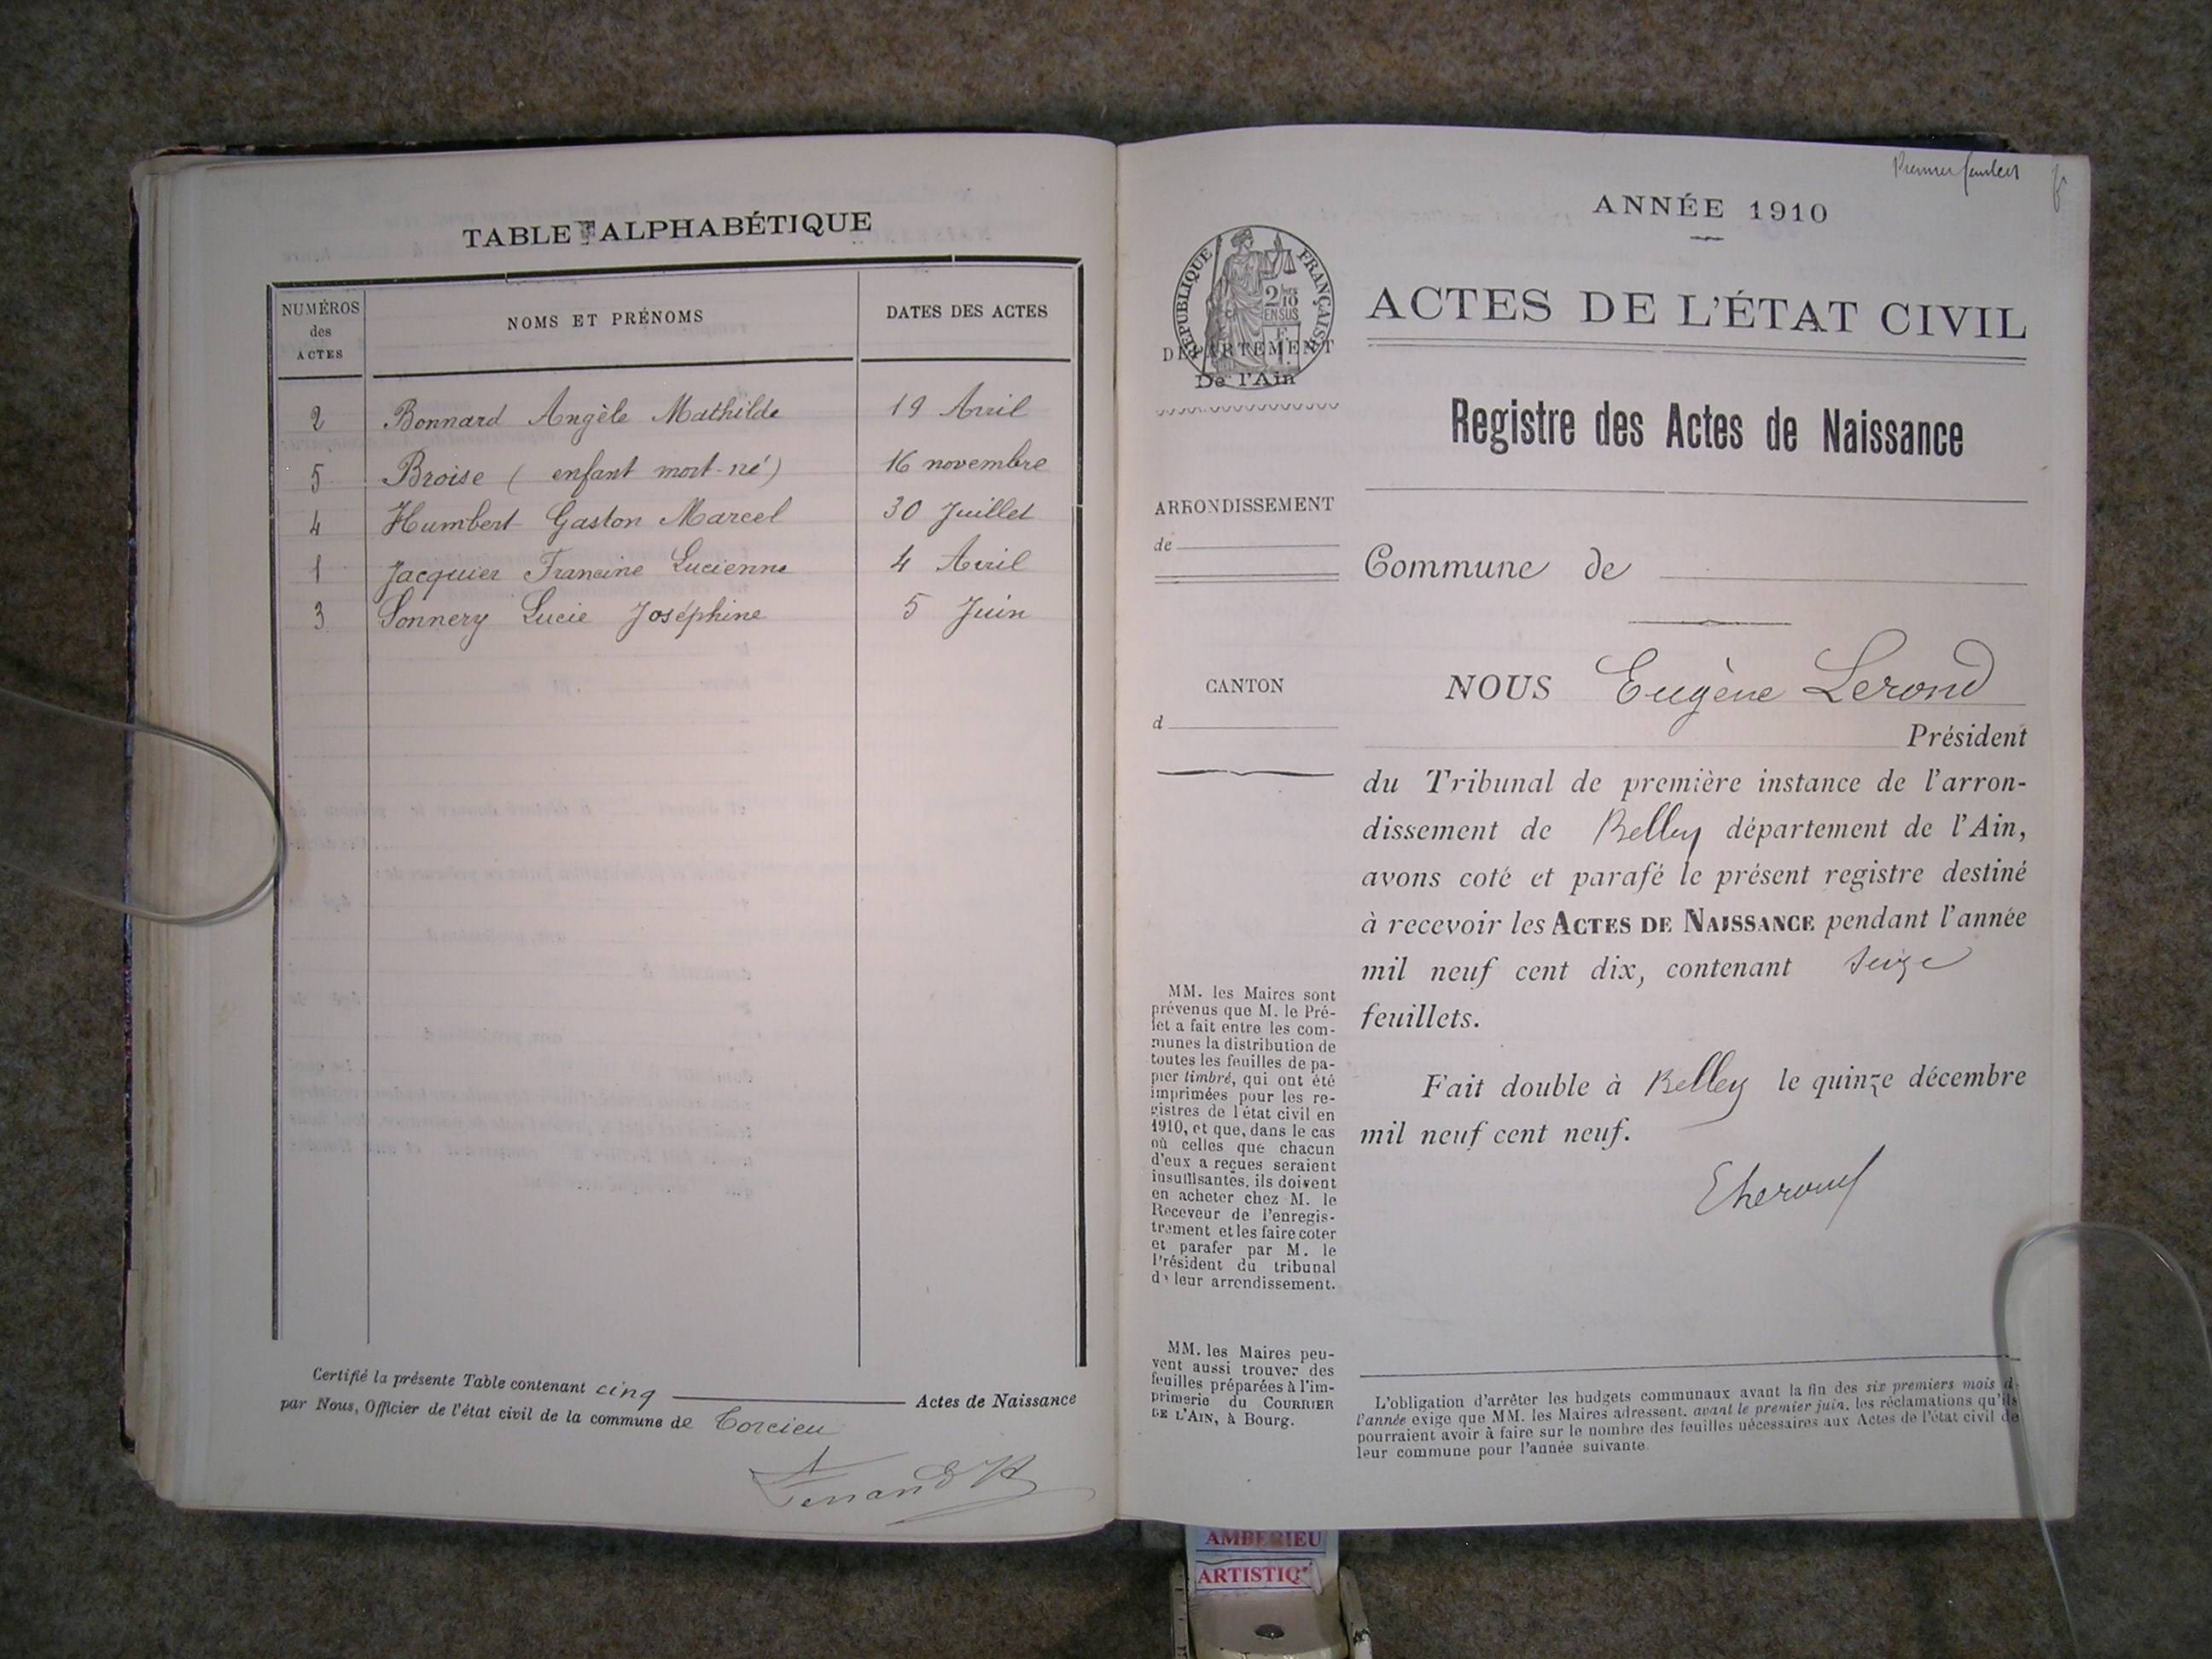 TABLE ALPHABÉTIQUE
NUMÉROS
des
ACTES
NOMS ET PRÉNOMS
DATES DES ACTES
2 Bonnard Angèle Mathilde 19 Avril
5 Broise ( enfant mort-né) 16 novembre
4 Humbert Gaston Marcel 30 Juillet
1 Jacquier Francine Lucienne 4 Avril
3 Sonnery Lucie Joséphine 5 Juin
Certifié la présente Table contenant cinq Actes de Naissance
par Nous, Officier de l'état civil de la commune de Torcieu
Premier feuillet
ANNÉE 1910
RÉPUBLIQUE FRANÇAISE
DÉPARTEMENT
De l'Ain
ACTES DE L'ÉTAT CIVIL
Registre des Actes de Naissance
ARRONDISSEMENT
de
Commune de
CANTON
d
NOUS Eugène Lerond
Président
du Tribunal de première instance de l'arron-
dissement de Belley département de l'Ain,
avons coté et parafé le présent registre destiné
à recevoir les ACTES DE NAISSANCE pendant l'année
mil neuf cent dix, contenant seize
feuillets.
Fait double à Belley le quinze décembre
mil neuf cent neuf.
MM. les Maires sont
prévenus que M. le Pré-
fet a fait entre les com-
munes la distribution de
toutes les feuilles de pa-
pier timbré, qui ont été
imprimées pour les re-
gistres de l'état civil en
1910, et que, dans le cas
où celles que chacun
d'eux a reçues seraient
insuffisantes, ils doivent
en acheter chez M. le
Receveur de l'enregis-
trement et les faire coter
et parafer par M. le
Président du tribunal
de leur arrondissement.
MM. les Maires peu-
vent aussi trouver des
feuilles préparées à l'im-
primerie du COURRIER
DE L'AIN, à Bourg.
L'obligation d'arrêter les budgets communaux avant la fin des six premiers mois d
l'année exige que MM. les Maires adressent, avant le premier juin, les réclamations qu'ils
pourraient avoir à faire sur le nombre des feuilles nécessaires aux Actes de l'état civil de
leur commune pour l'année suivante.
AMBERIEU
ARTISTIQ